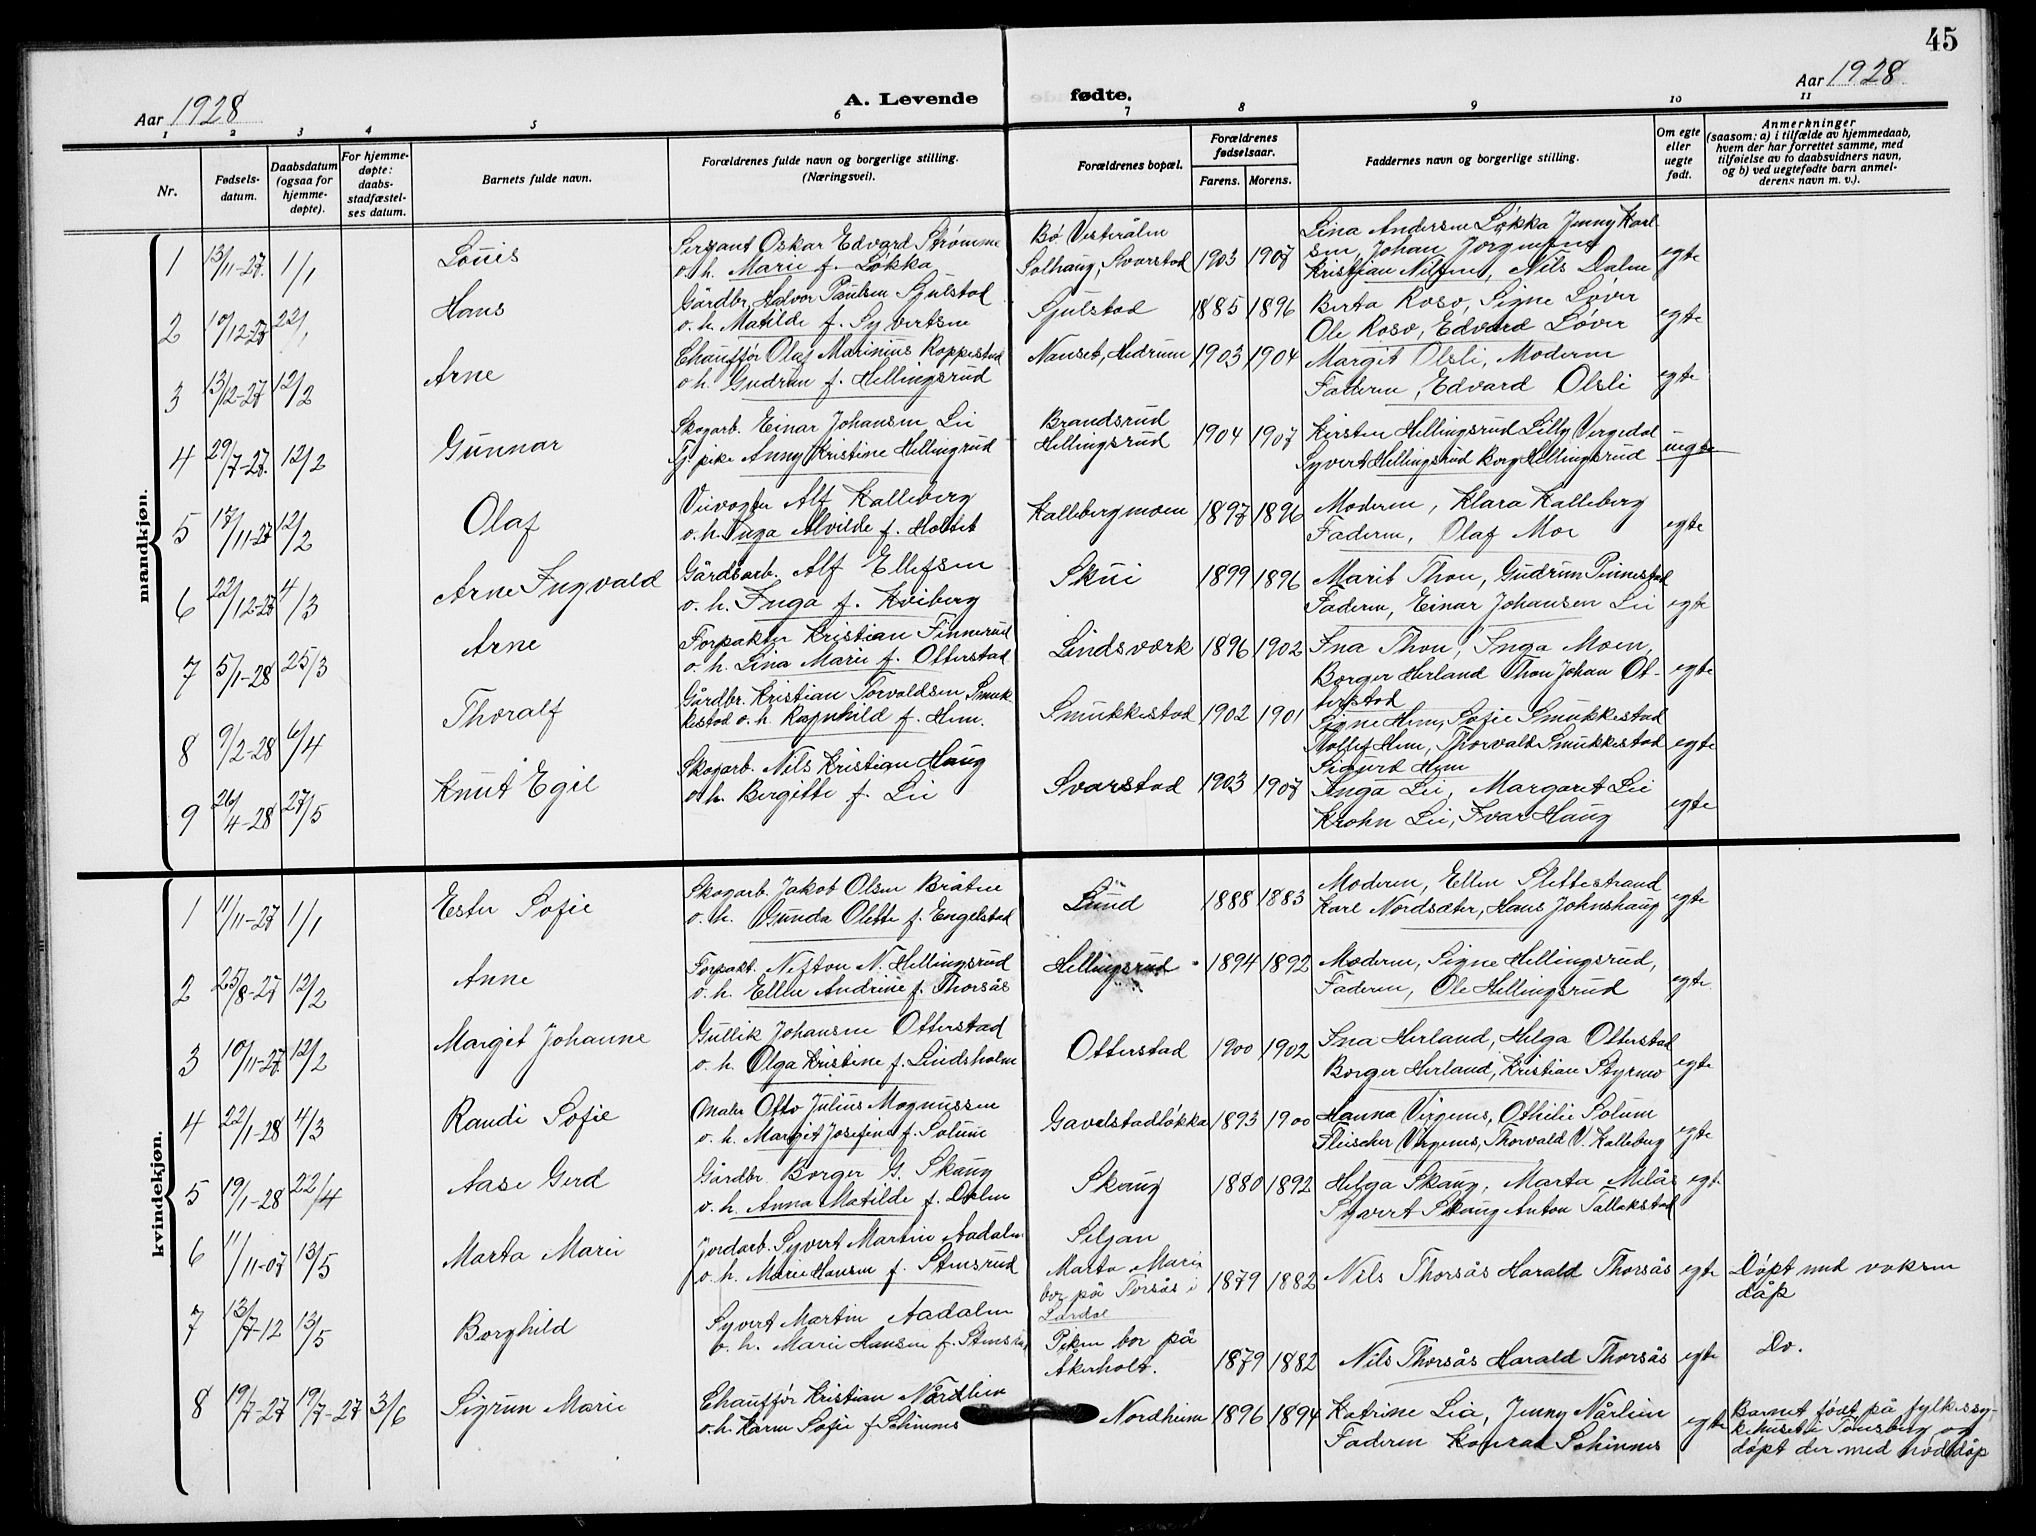 45
Aar 1928
A. Levende
fødte.
Aar 1928
1 2 3 4 5 6 7 8 9 10 11
Nr.
Fødsels-
datum.
Daabsdatum
(ogsaa for
hjemme-
døpte).
For hjemme-
døpte:
daabs-
stadfæstel-
ses datum.
Barnets fulde navn.
Forældrenes fulde navn og borgerlige stilling.
(Næringsvei).
Forældrenes bopæl.
Forældrenes
fødselsaar.
Farens. Morens.
Faddernes navn og borgerlige stilling.
Om egte
eller
uegte
født.
Anmerkninger
(saasom: a) i tilfælde av hjemmedaab,
hvem der har forrettet samme, med
tilføielse av to daabsvidners navn,
og b) ved uegtefødte barn anmel-
derens navn m. v.).
mandkjøn.
1 13/11-27. 1/1 Louis
Sersjant Oskar Edvard Strømme
o. h. Marie f. Løkka
Bø Vesterålen
Solhaug, Svarstad 1903 1907
Lina Andersen Løkka Jenny Karl
sen, Johan Jørgensen
Kristian Nilsen, Nils Dalen
egte
2 10/12-27 22/1 Hans
Gårdbr. Halvor Paulsen Sjulstad
o. h. Matilde f. Syvertsen
Sjulstad 1885 1896
Berta Roso, Signe Løver
Ole Roso, Edvard Løver
egte
3 13/12-27 12/2 Arne
Chauffør Olaf Marinius Roppestad
o. h. Gudrun f. Hellingsrud
Nanset, Hedrum 1903 1904
Margit Olsli, Moderen
Faderen, Edvard Olsli
egte
4 29/7-27. 12/2 Gunnar
Skogarb. Einar Johansen Lie
Tj. pike Anny Kristine Hellingrud
Brandsrud
Hellingsrud 1904 1907
Kirsten Hellingsrud Lilly Vergedal
Syvert Hellingsrud Borg Hellingsrud
uegte
5 17/11-27 12/2 Olaf
Veivogter Alf Kalleberg
o. h. Inga Alvilde f. Holtet
Kallebergmoen 1897 1896
Moderen, Klara Kalleberg
Faderen, Olaf Moe
egte
6 22/12-27 4/3 Arne Ingvald
Gårdsarb. Alf Ellefsen
o. h. Inga f. Kviberg
Skui 1899 1896
Marit Thon, Gudrun Pinnestad
Faderen, Einar Johansen Lie
egte
7 5/1-28 25/3 Arne
Forpakter Kristian Finnerud
o. h. Lina Marie f. Otterstad
Lindsværk 1896 1902
Ina Thon, Inga Moen,
Borger Herland Thon Johan Ot-
terstad
egte
8 9/2-28 6/4 Thoralf
Gårdbr. Kristian Torvaldsen Smuk-
kestad o. h. Ragnhild f. Hem.
Smukkestad 1902 1901
Signe Hem, Sofie Smukkestad
Tollef Hem, Thorvald Smukkestad
Sigurd Hem
egte
9 26/4-28 27/5 Knut Egil
Skogarb. Nils Kristian Haug
o. h. Bergitte f. Lie
Svarstad 1903 1907
Anga Lie, Margaret Lie
Krohn Lie, Ivar Haug
egte
kvindekjøn.
1 11/11-27 1/1 Ester Sofie
Skogarb. Jakob Olsen Bråten
o. h. Gunda Olette f. Engelstad
Lund 1888 1883
Moderen, Ellen Slettestrand
Karl Nordsæter, Hans Johnshaug
egte
2 25/8-27 12/2 Anne
Forpakt. Nefton N. Hellingsrud
o. h. Ellen Andrine f. Thorsås
Hellingsrud 1894 1892
Moderen, Signe Hellingsrud,
Faderen, Ole Hellingsrud
egte.
3 10/11-27. 12/2 Margit Johanne
Gullik Johansen Otterstad
o. h. Olga Kristine f. Lindsholm
Otterstad 1900 1902
Ina Herland, Helga Otterstad
Borger Herland, Kristian Styrmo
egte
4 22/1-28 4/3 Randi Sofie
Maler Otto Julius Magnussen
o. h. Margit Josefine f. Solum
Gavelstadløkka 1893 1900
Hanna Virgenes, Othilie Solum
Fleischer Virgenes, Thorvald V. Kalleberg
egte
5 19/1-28 22/4 Aase Gerd
Gårdbr. Borger G. Skaug
o. h. Anna Matilde f. Dalen
Skaug 1880 1892
Helga Skaug, Marta Milås
Syvert Skaug Anton Tallakstad
egte
6 11/11-07 13/5 Marta Marie
Jordarb. Syvert Martin Aadalen
o. h. Marie Hansen f. Stensrud
Siljan
Marta Marie
bor på Torsås i
Lardal
1879 1882
Nils Thorsås Harald Thorsås egte
Døpt med voksen
dåp
7 13/7-12 13/5 Borghild
Syvert Martin Aadalen
o. h. Marie Hansen f. Stensrud
Piken bor på
Åkerholt. 1879 1882
Nils Thorsås Harald Thorsås egte
Do.
8 19/7-27 19/7-27 3/6 Sigrun Marie
Chauffør Kristian Nordlien
o. h. Karen Sofie f. Sohinnes
Nordheim 1896 1894
Katrine Lia, Jenny Nårlien
Faderen Konrad Sohinnes
egte
Barnet født på fylkessy-
kehuset i Tønsberg og
døpt der med nøddåp